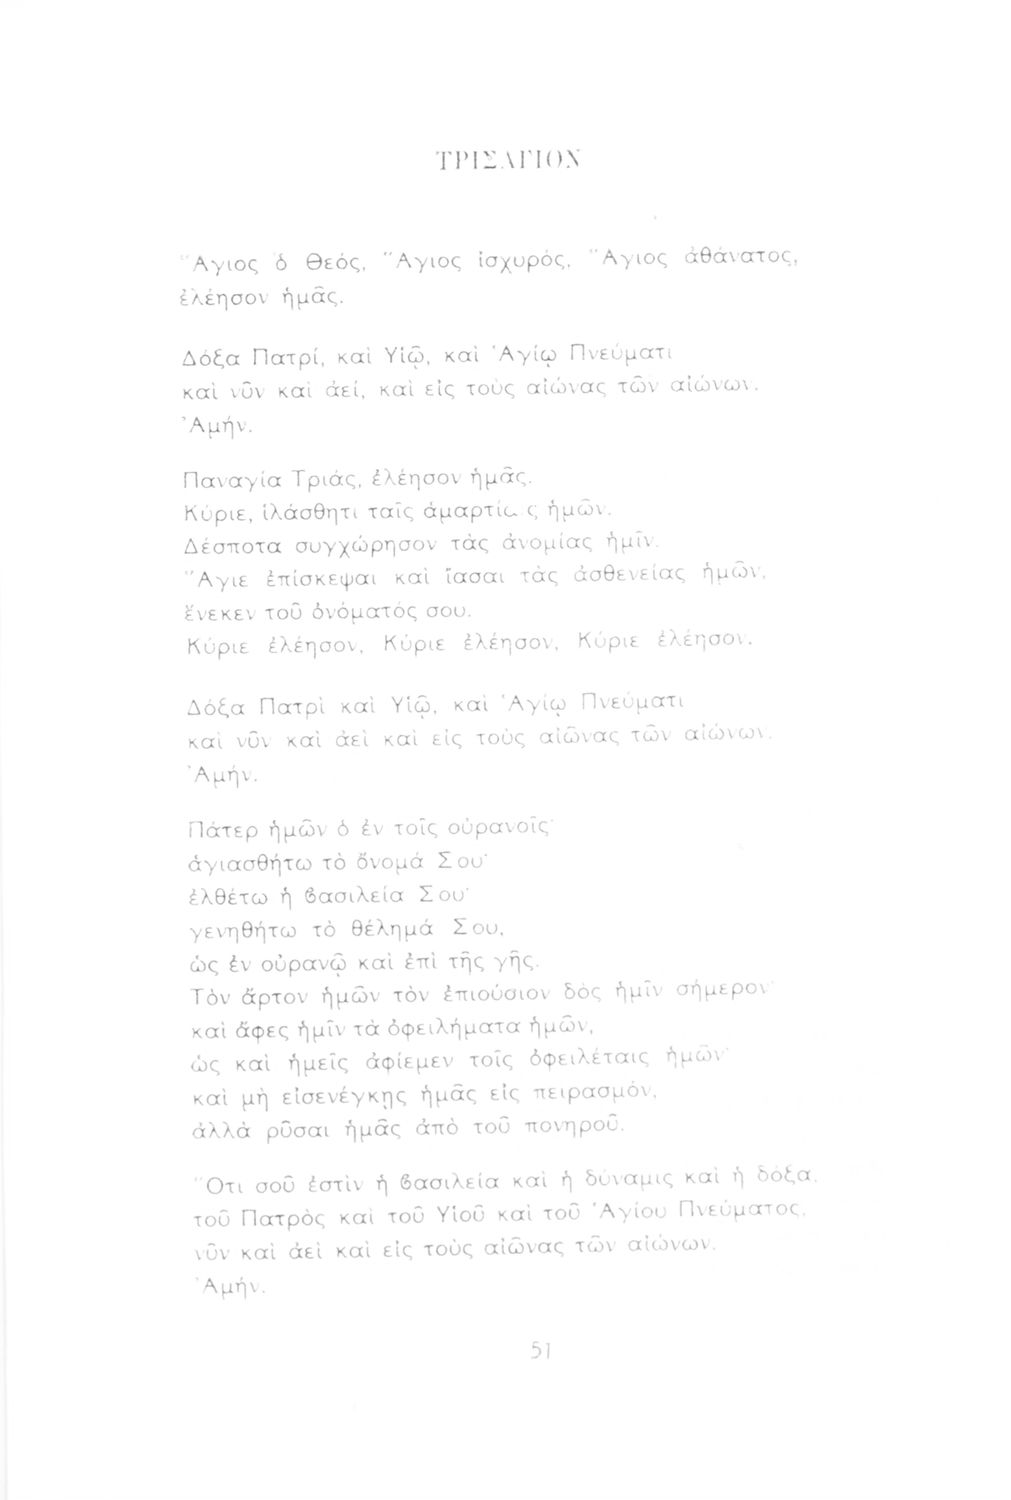 ΤΡΙΣΑΓΙΟΝ
Ἅγιος ὁ Θεός, Ἅγιος ἰσχυρός, Ἅγιος ἀθάνατος,
ἐλέησον ἡμᾶς.
Δόξα Πατρί, καὶ Υἱῷ, καὶ Ἁγίῳ Πνεύματι
καὶ νῦν καὶ ἀεί, καὶ εἰς τοὺς αἰώνας τῶν αἰώνων.
Ἀμήν.
Παναγία Τριάς, ἐλέησον ἡμᾶς.
Κύριε, ἱλάσθητι ταῖς ἁμαρτίαις ἡμῶν.
Δέσποτα συγχώρησον τὰς ἀνομίας ἡμῖν.
Ἅγιε ἐπίσκεψαι καὶ ἴασαι τὰς ἀσθενείας ἡμῶν,
ἕνεκεν τοῦ ὀνόματός σου.
Κύριε ἐλέησον, Κύριε ἐλέησον, Κύριε ἐλέησον.
Δόξα Πατρὶ καὶ Υἱῷ, καὶ Ἁγίῳ Πνεύματι
καὶ νῦν καὶ ἀεὶ καὶ εἰς τοὺς αἰῶνας τῶν αἰώνων.
Ἀμήν.
Πάτερ ἡμῶν ὁ ἐν τοῖς οὐρανοῖς·
ἁγιασθήτω τὸ ὄνομά Σου·
ἐλθέτω ἡ βασιλεία Σου·
γενηθήτω τὸ θέλημά Σου,
ὡς ἐν οὐρανῷ καὶ ἐπὶ τῆς γῆς.
Τὸν ἄρτον ἡμῶν τὸν ἐπιούσιον δὸς ἡμῖν σήμερον·
καὶ ἄφες ἡμῖν τὰ ὀφειλήματα ἡμῶν,
ὡς καὶ ἡμεῖς ἀφίεμεν τοῖς ὀφειλέταις ἡμῶν·
καὶ μὴ εἰσενέγκῃς ἡμᾶς εἰς πειρασμόν,
ἀλλὰ ρῦσαι ἡμᾶς ἀπὸ τοῦ πονηροῦ.
Ὅτι σοῦ ἐστὶν ἡ βασιλεία καὶ ἡ δύναμις καὶ ἡ δόξα,
τοῦ Πατρὸς καὶ τοῦ Υἱοῦ καὶ τοῦ Ἁγίου Πνεύματος,
νῦν καὶ ἀεὶ καὶ εἰς τοὺς αἰῶνας τῶν αἰώνων.
Ἀμήν.
51